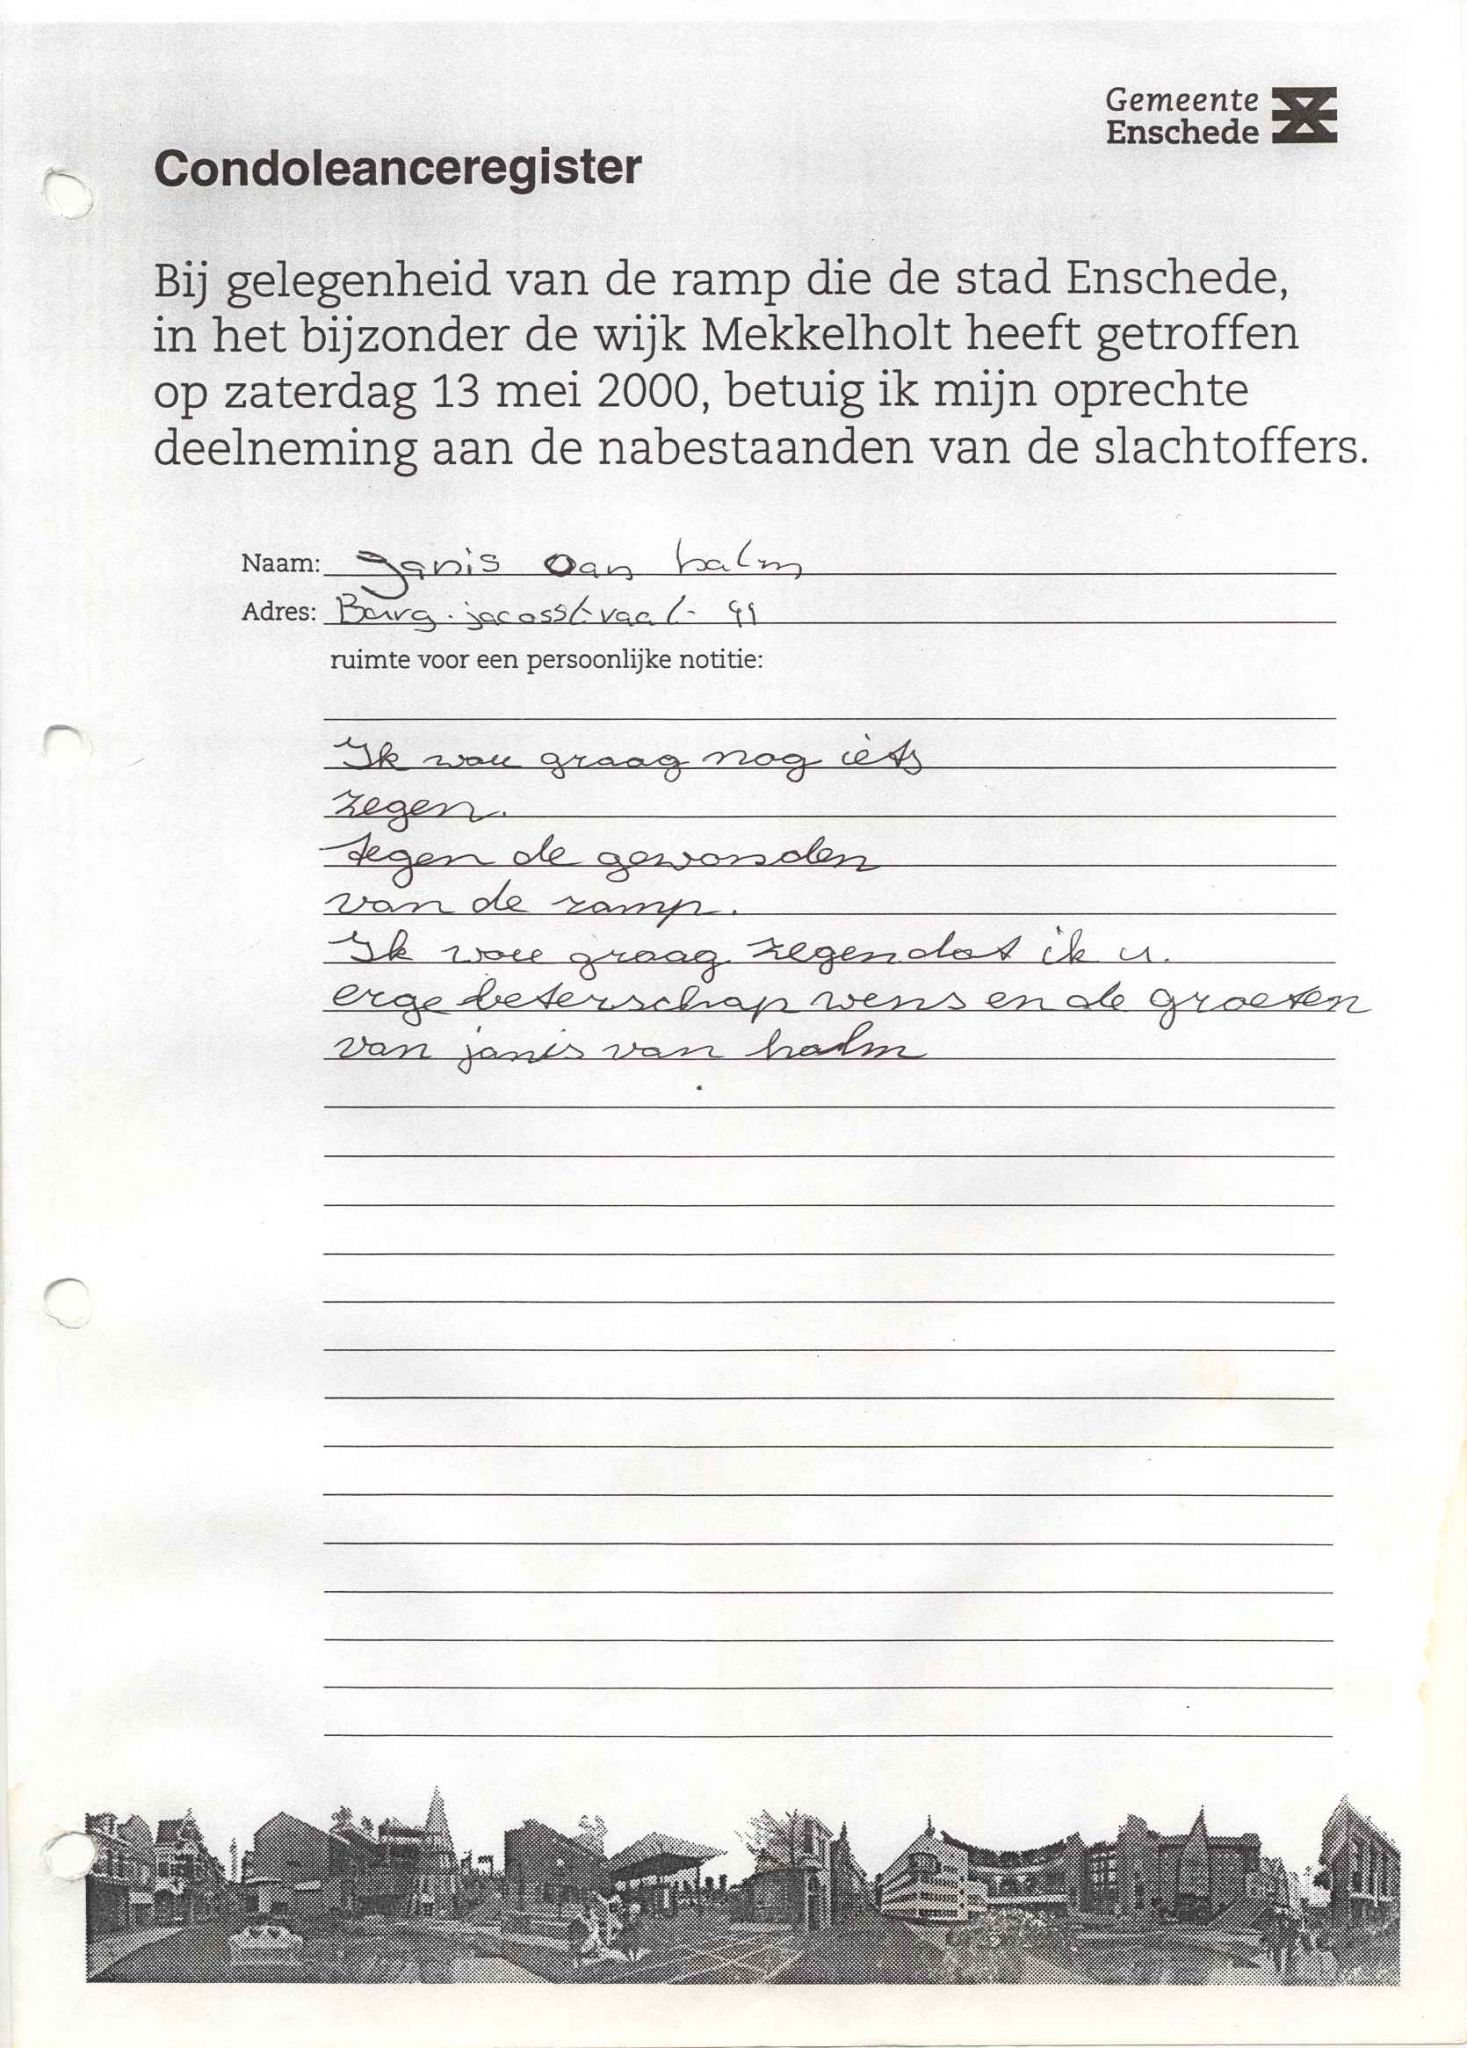 Gemeente
Enschede
Condoleanceregister
Bij gelegenheid van de ramp die de stad Enschede,
in het bijzonder de wijk Mekkelholt heeft getroffen
op zaterdag 13 mei 2000, betuig ik mijn oprechte
deelneming aan de nabestaanden van de slachtoffers.
Naam: Janis van halm
Adres: Burg. jacosstraat 99
ruimte voor een persoonlijke notitie:
Ik wou graag nog iets
zegen.
tegen de gewonden
van de ramp.
Ik wou graag zegen dat ik u.
erge beterschap wens en de groeten
van janis van halm